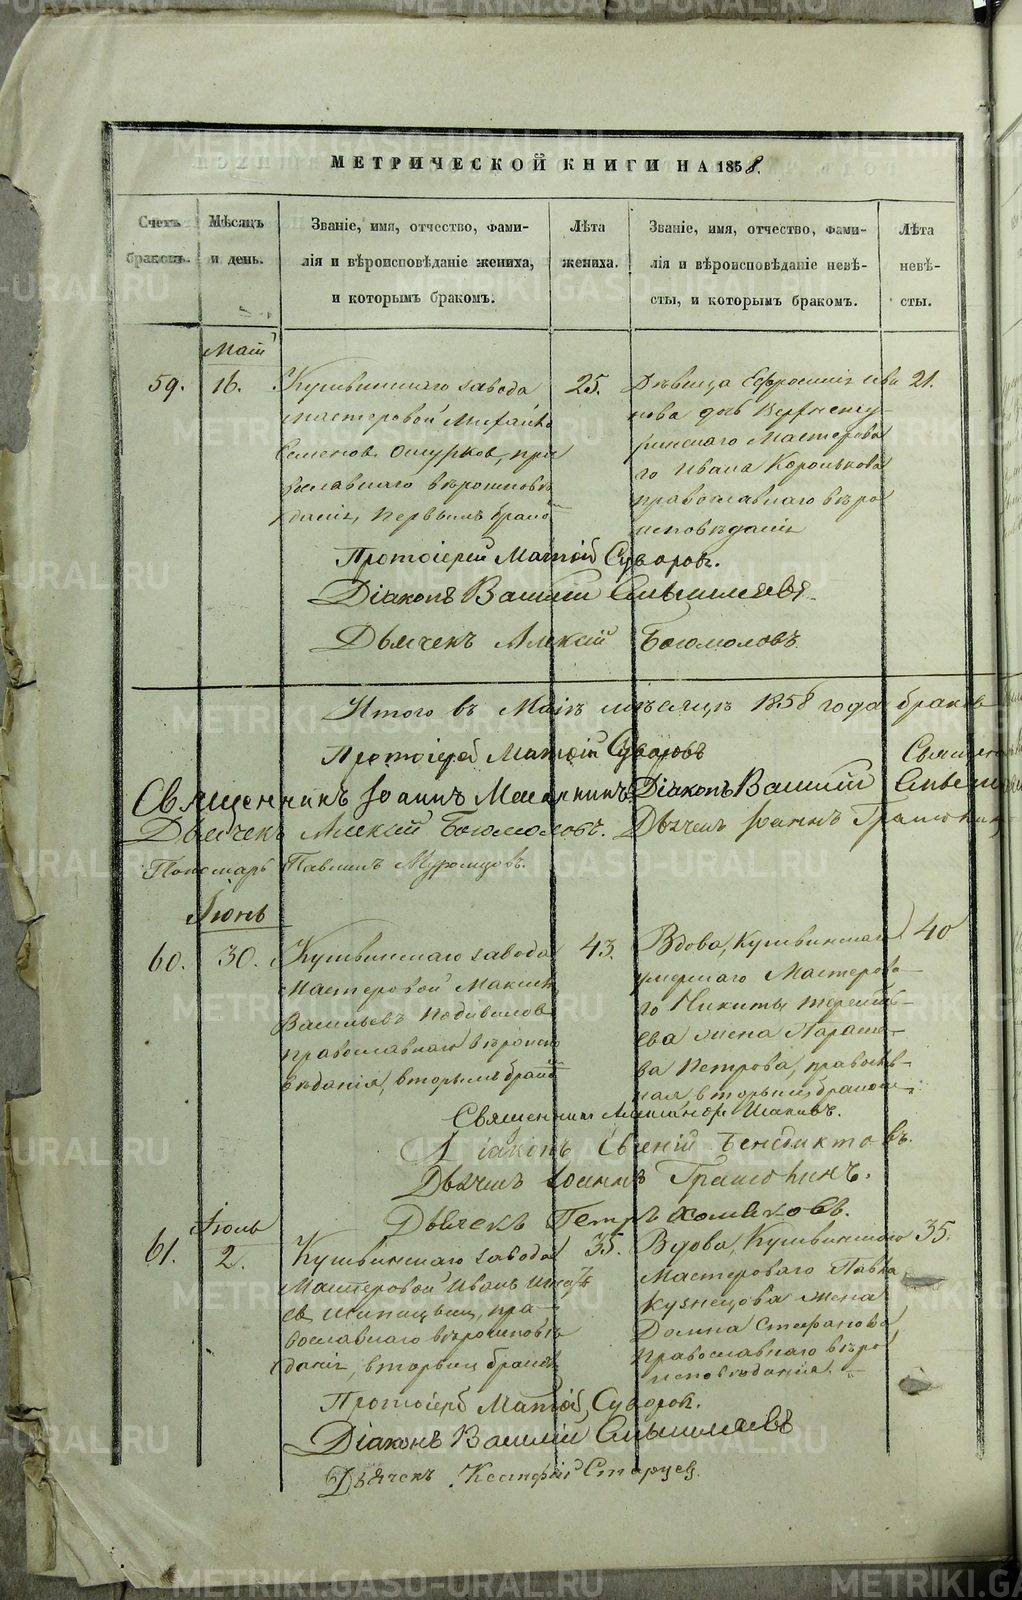 МЕТРИЧЕСКОЙ КНИГИ НА 1858.
Счетъ браковъ.
Мѣсяцъ и день.
Званіе, имя, отчество, фами-
лія и вѣроисповѣданіе жениха,
и которымъ бракомъ.
Лѣта
жениха.
Званіе, имя, отчество, фами-
лія и вѣроисповѣданіе невѣ-
сты, и которымъ бракомъ.
Лѣта
невѣ-
сты.
Май
59.
16.
Кушвинскаго завода
мастеровой Михайло
Семеновъ Ошурков, пра
вославнаго вѣроисповѣ
данія, первымъ брако
25.
Дѣвица Ефросинія Ива
нова дочь Верхнету-
ринскаго Мастерова
го Ивана Королькова
православнаго вѣро
исповѣданія
21.
Протоіерей Матѳій Суворов.
Діаконъ Василій
Дьячекъ Алексій Богомоловъ.
Итого въ Маіѣ мѣсяцѣ 1858 года браков
Протоіерей Матѳій Суворовъ
Священ
Священникъ Іоаннъ
Діаконъ Василій
Дьячекъ Алексій Богомоловъ.
Дьячекъ Іоаннъ
Пономарь Павлинъ Муромцовъ.
Іюнь
60.
30.
Кушвинскаго завода
Мастеровой Максимъ
Васильевъ
православнаго вѣроиспо
вѣданія, вторымъ брако
43.
Вдова, Кушвинскаго
умершаго Мастерова-
го Никиты Теренть-
ева жена Параске-
ва Петрова, православ-
ная, вторымъ бракомъ.
40
Священник Александр
Діаконъ Евгеній Бенедиктовъ.
Дьячекъ Іоаннъ
Дьячекъ Петръ Хомяковъ.
Іюль
61.
2.
Кушвинскаго завода
Мастеровой Иванъ
ев Шипицын, пра-
вославнаго вѣроисповѣ
данія, вторым брако
35.
Вдова, Кушвинскаго
Мастероваго Павла
Кузнецова жена
Домна Стефанова
православнаго вѣро
исповѣданія.
35.
Протоіерей Матѳій Суворов.
Діаконъ Василій
Дьячекъ Старцев.
METRIKI.GASO-URAL.RU